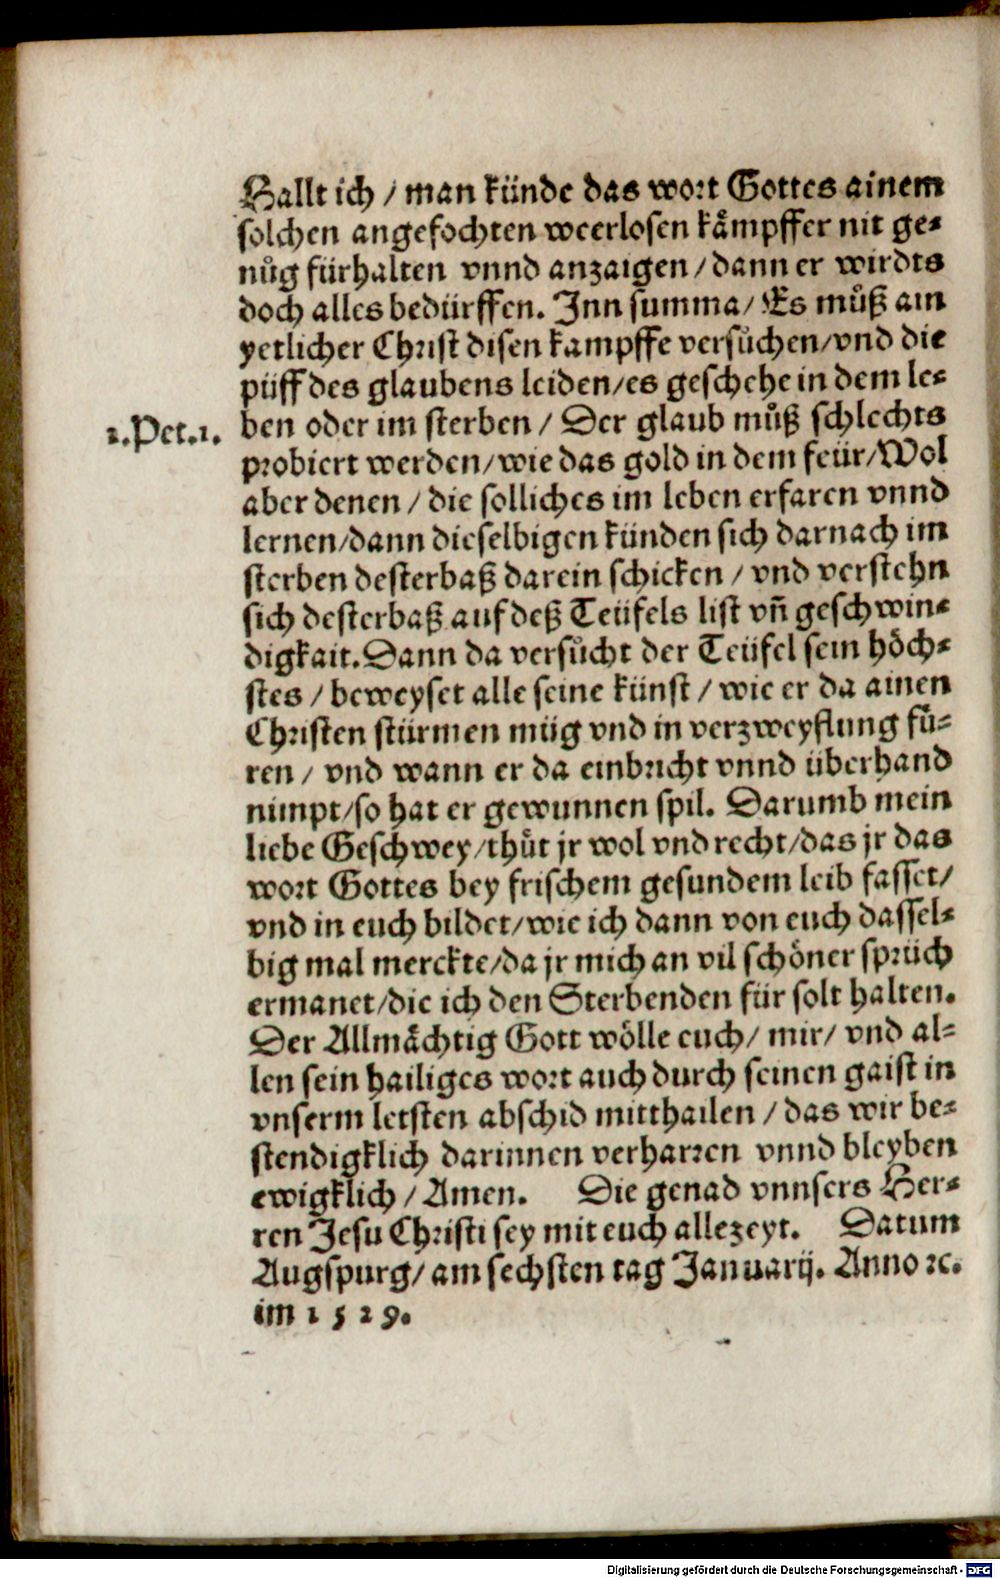 Hallt ich / man künde das wort Gottes ainem
solchen angefochten weerlosen kaͤmpffer nit ge⸗
nuͦg fürhalten vnnd anzaigen / dann er wirdts
doch alles bedürffen. Inn summa / Es muͦß ain
yetlicher Christ disen kampffe versuͦchen / vnd die
püff des glaubens leiden / es geschehe in dem le⸗
1.Pet.1. ben oder im sterben / Der glaub muͦß schlechts
probiert werden / wie das gold in dem feür / Wol
aber denen / die solliches im leben erfaren vnnd
lernen / dann dieselbigen künden sich darnach im
sterben desterbaß darein schicken / vnd verstehn
sich desterbaß auf deß Teüfels list vñ geschwin⸗
digkait. Dann da versuͦcht der Teüfel sein hoͤch⸗
stes / beweyset alle seine künst / wie er da ainen
Christen stürmen müg vnd in verzweyflung fuͤ⸗
ren / vnd wann er da einbricht vnnd überhand
nimpt / so hat er gewunnen spil. Darumb mein
liebe Geschwey / thuͦt jr wol vnd recht / das jr das
wort Gottes bey frischem gesundem leib fasset /
vnd in euch bildet / wie ich dann von euch dassel⸗
big mal merckte / da jr mich an vil schoͤner sprüch
ermanet / die ich den Sterbenden für solt halten.
Der Allmaͤchtig Gott woͤlle euch / mir / vnd al⸗
len sein hailiges wort auch durch seinen gaist in
vnserm letsten abschid mitthailen / das wir be⸗
stendigklich darinnen verharren vnnd bleyben
ewigklich / Amen. Die genad vnnsers Her⸗
ren Jesu Christi sey mit euch allezeyt. Datum
Augspurg / am sechsten tag Januarij. Anno ꝛc.
im 1529.
Digitalisierung gefördert durch die Deutsche Forschungsgemeinschaft - DFG